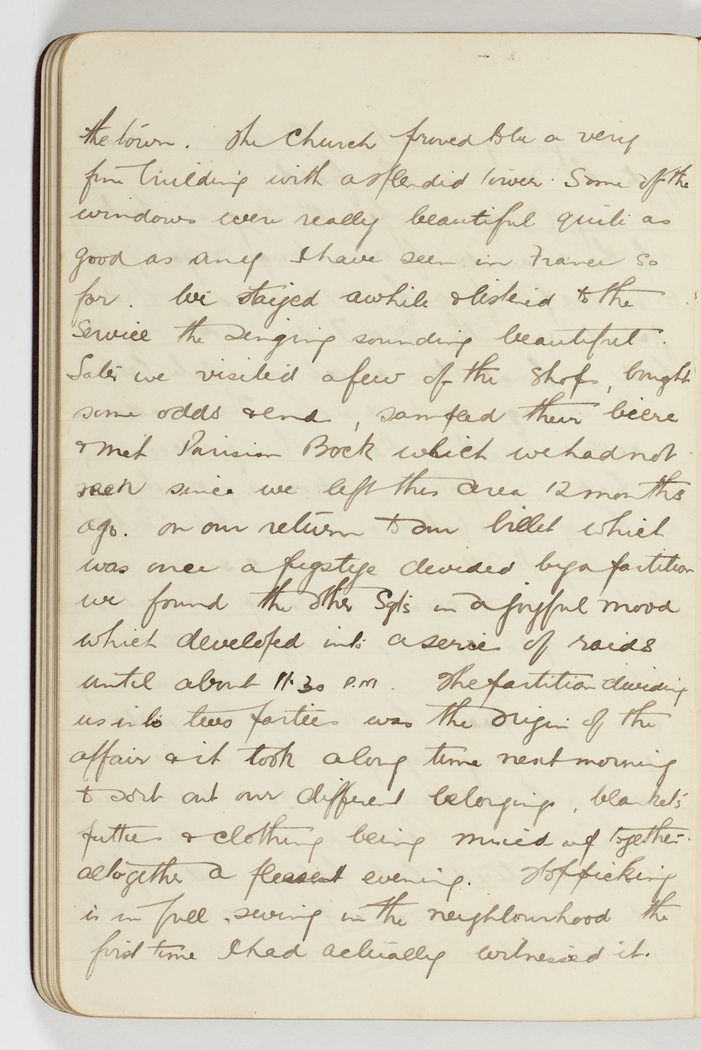 the town. The Church proved to be a very
fine building with a splendid tower. Some of the
windows were really beautiful quite as
good as any I have seen in France so
far. We stayed awhile & listened to the
Service the singing sounding beautiful.
Later we visited a few of the shops, bought
some odds & ends, sampled their biere
& met Parisian Bock which we had not
seen since we left this area 12 months
ago. on our return to our billet which
was once a pigstye divided by a partition
we found the other Sgts in a joyful mood
which developed into a series of raids
until about 11.30 P.M. The partition dividing
us into two parties was the origin of the
affair & it took a long time next morning
to sort out our different belongings, blankets
putties & clothing being mixed up together.
altogether a pleasant evening. Hop picking
is in full swing in the neighbourhood the
first time I had actually witnessed it.